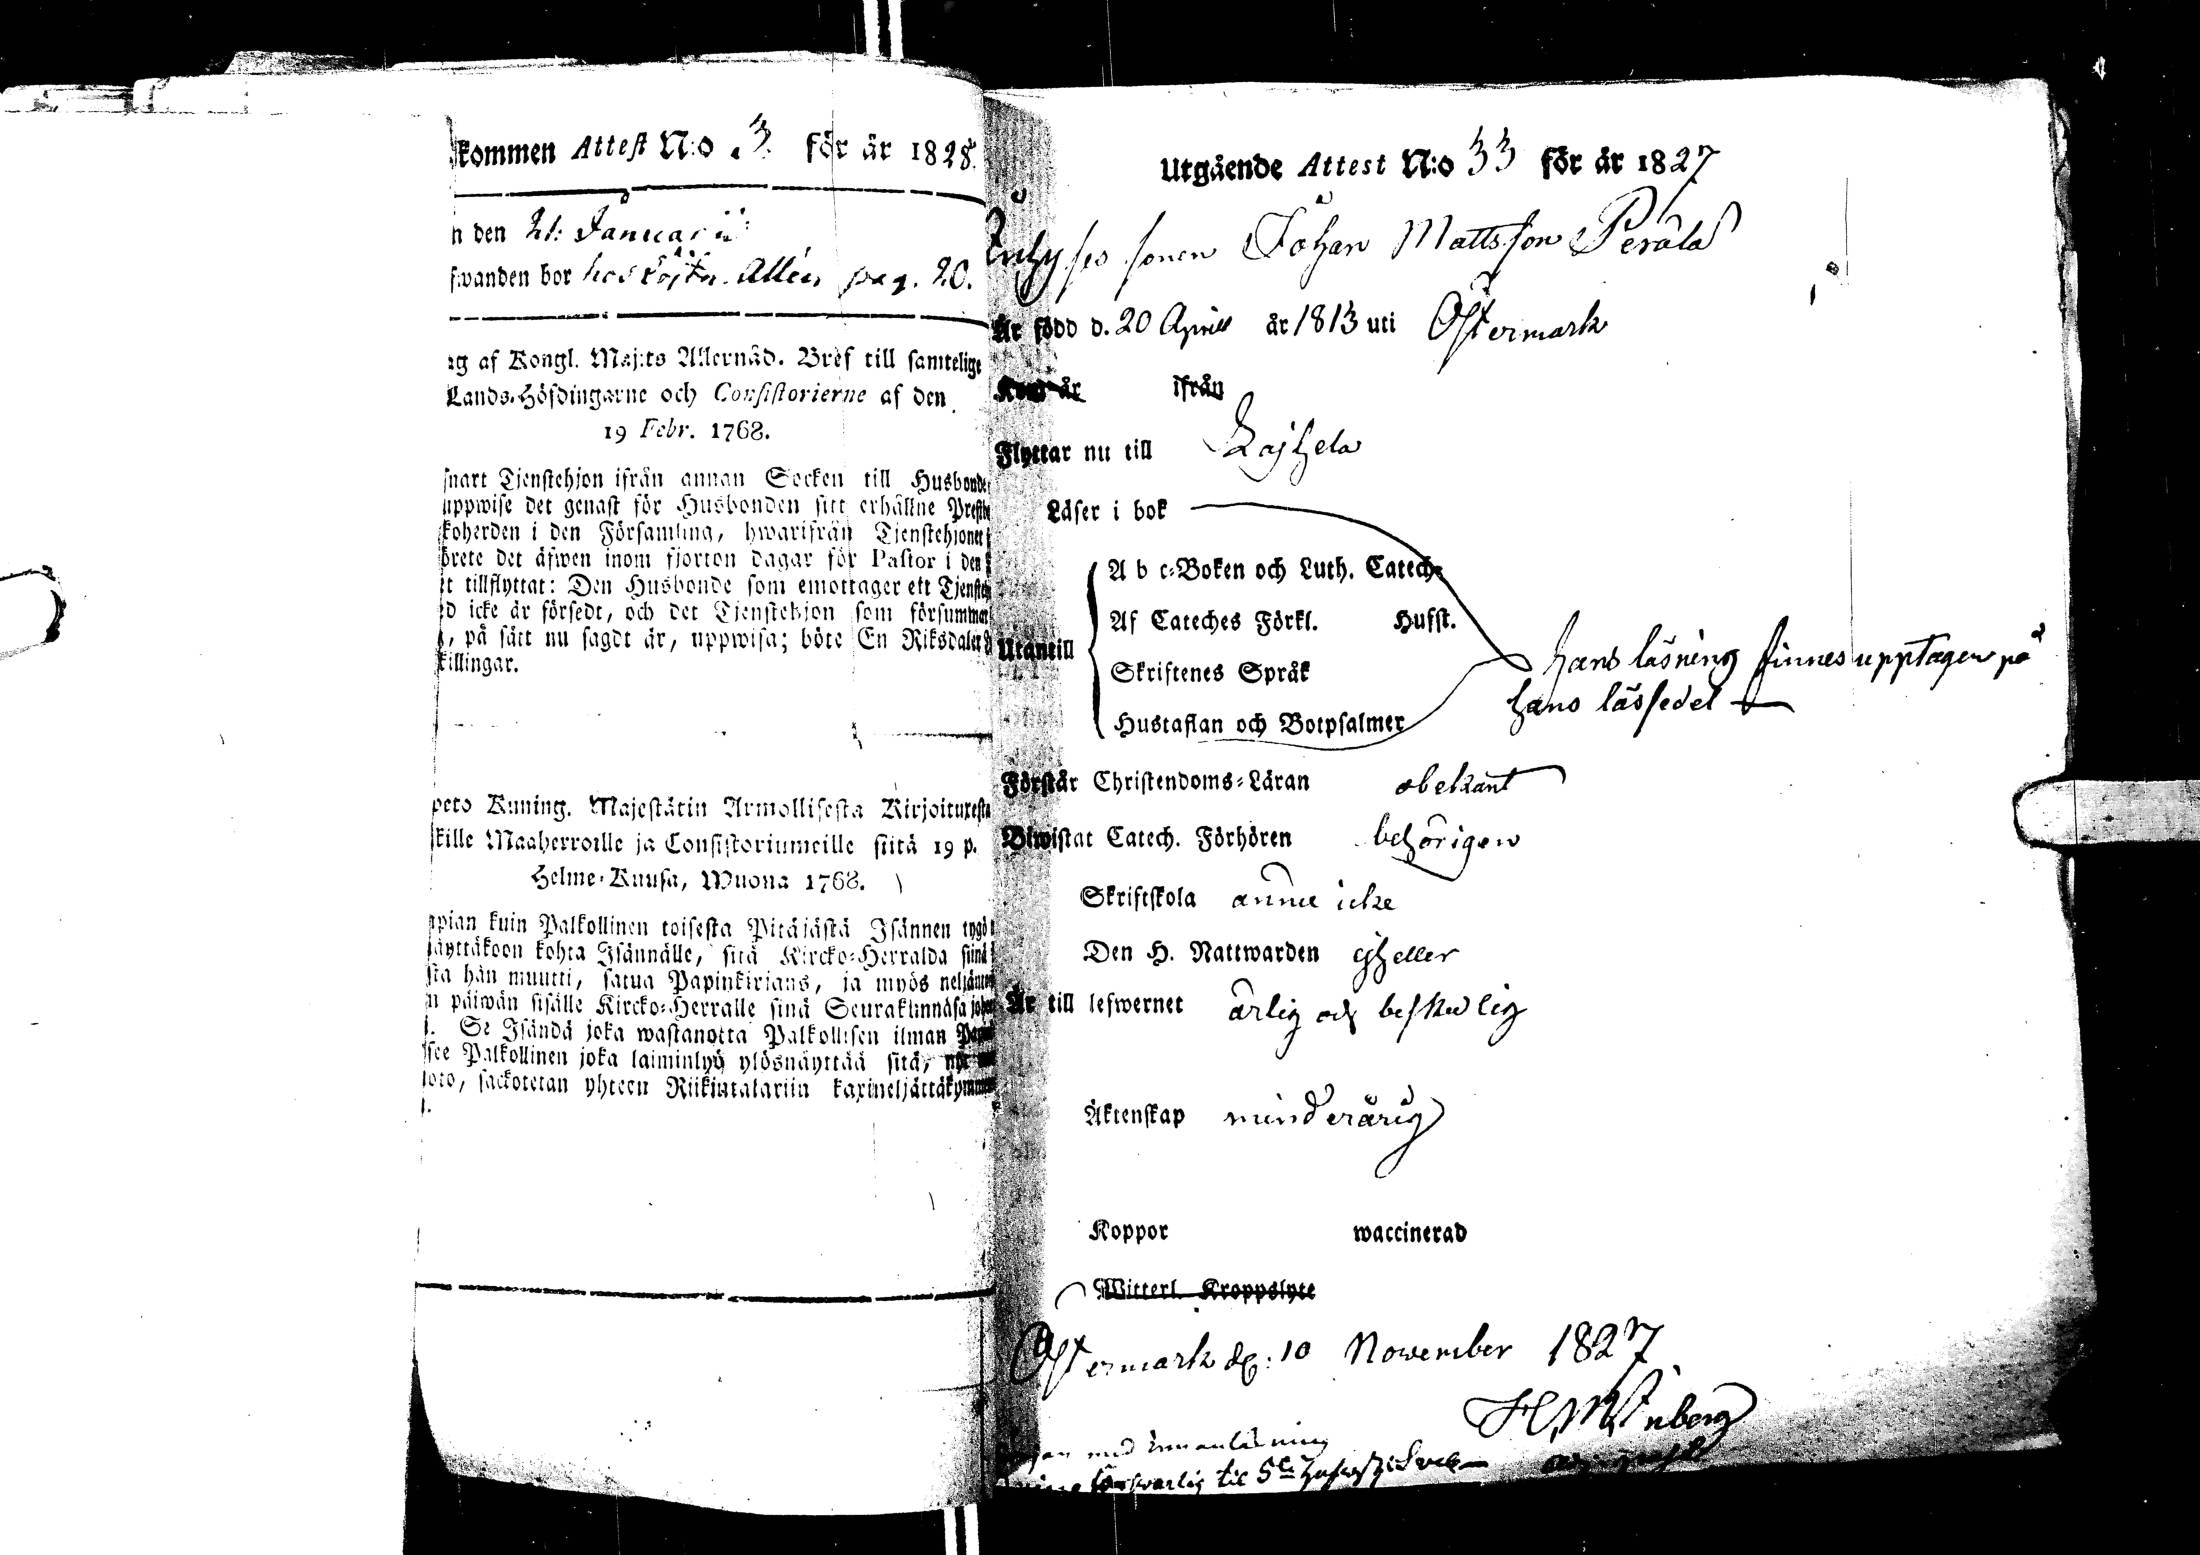 kommen Attest N:o 3. för år 1828.
n den 21: Januarii
swanden bor hos pag. 20.
ng af Kongl. Maj:ts Allernåd. Bref till samtelige
Lands-Höfdingarne och Consistorierne af den
19 Febr. 1768.
snart Tjenstehjon ifrån annan Socken till Husbonde
uppwise det genast för Husbonden sitt erhållne Prestbe
koherden i den Församling, hwarifrån Tjenstehjonet
örete det äfwen inom fjorton dagar för Pastor i den
et tillflyttat: Den Husbonde som emottager ett Tjensteh
ed icke är försedt, och det Tjenstehjon som försummar
, på sätt nu sagdt är, uppwisa; böte En Riksdaler
killingar.
peto Kuning. Majestätin Armollisesta Kirjoituxesta
kille Maaherroille ja Consistoriumeille siitä 19 p.
Helme-Kuusa, Wuona 1768.
apian kuin Palkollinen toisesta Pitäjästä Isännen tygö
näyttäkoon kohta Isännälle, sitä Kircko-Herralda siinä
sta hän muutti, satua Papinkirjans, ja myös neljänto
n päiwän sisälle Kircko-Herralle siinä Seurakunnasa joho
. Se Isändä joka wastanotta Palkollisen ilman Papin
see Palkollinen joka laiminlyö ylösnäyttää sitä, nyt
oto, sackotetan yhteen Riikintalariin kaxineljättäkymmen
Utgående Attest N:o 33 för år 1827
sonen Johan Mattsson Perälä
Är född d. 20 April år 1813 uti Östermark
Kom år ifrån
Flyttar nu till Lajhela
Läser i bok
A b c-Boken och Luth. Catech.
Af Cateches Förkl. Hufst.
Utantill
Skriftenes Språk
hans läsning finnes upptagen på
hans lässedel
Hustaflan och Botpsalmer
Förstår Christendoms-Läran obekant
Biwistat Catech. Förhören behörigen
Skriftskola ännu icke
Den H. Nattwarden ej heller
Är till lefwernet ärlig och beskedlig
Äktenskap minderårig
Koppor waccinerad
Witterl. Kroppslyte
Östermark d: 10 November 1827
med innanläsning
förswarlig til 5te